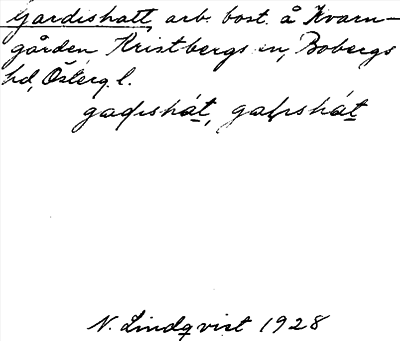 Gardishatt, arb. bost. å Kvarn-
gården Kristbergs sn, Bobergs
hd, Österg. l.
gaɖishát, gaɖishát
N. Lindqvist 1928